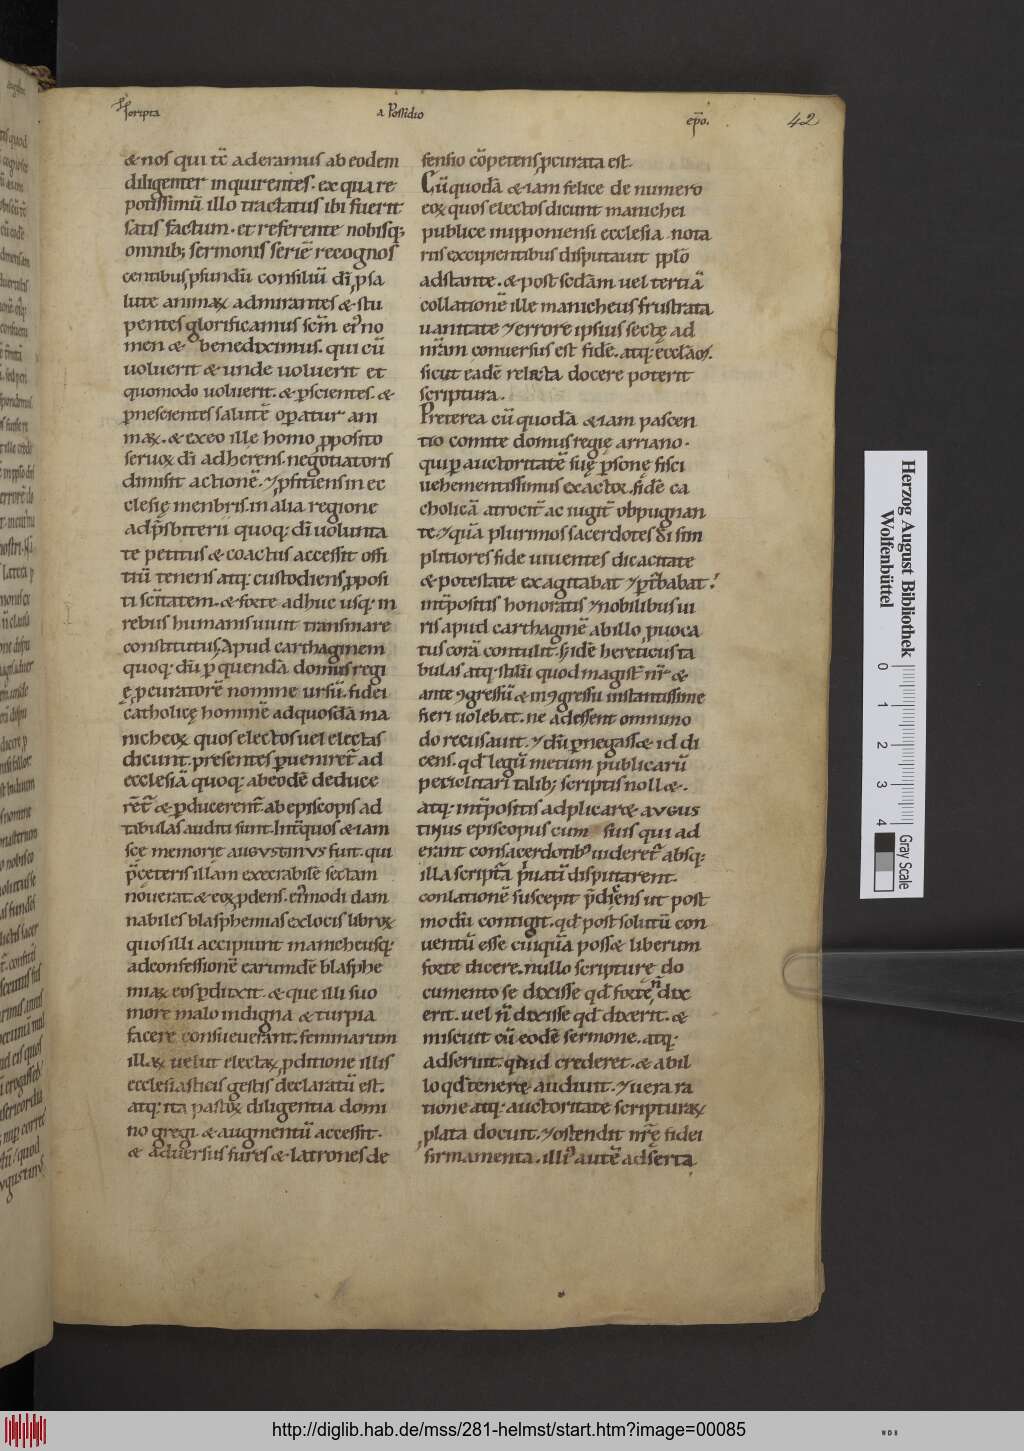 scripta
a Possidio
ep̄o.
42
& nos qui tc̄ aderamus ab eodem
diligenter inquirentes. ex qua re
potissimū illo tractatus ibi fuerit
satis factum. et referente nobisq;
omnib; sermonis seriē recognos
centibus ꝓfundū consiliū dī ꝓ sa
lute animaꝝ admirantes & stu
pentes glorificamus scm̄ ei' no
men & benediximus. qui cū
uoluerit & unde uoluerit et
quomodo uoluerit. & ꝑ scientes. &
ꝑ nescientes salutē oꝑatur ani
maꝝ. & ex eo ille homo ꝓposito
seruoꝝ dī adherens. negotiatoris
dimisit actionē. ⁊ ꝓficiens in ec
clesię menbris. in alia regione
ad p̄sbiterii quoq; dī uolunta
te petitus & coactus accessit offi
tiū tenens atq; custodiens ꝓposi
ti sc̄itatem. & forte adhuc usq; in
rebus humanis uiuit transmare
constitutus. Apud carthaginem
quoq; dū ꝑ quendā domus regi
ę ꝓcuratorē nomine ursū. fidei
catholicę hominē ad quosdā ma
nicheoꝝ quos electos uel electas
dicunt. presentes ꝑueniret̄ ad
ecclesiā quoq; ab eodē deduce
rēt̄ & ꝑducerent̄. ab episcopis ad
tabulas auditi sunt. Int̄ quos & iam
scę memorię AUGVSTINVS fuit. qui
p̄ ceteris illam execrabilē sectam
nouerat. & eoꝝ ꝓdens. ei'modi dam
nabiles blasphemias ex locis libroꝝ
quos illi accipiunt manicheusq;
ad confessionē earumdē blasphe
miaꝝ eos ꝑdixit. & que illi suo
more malo indigna & turpia
facere consueuerant. feminarum
illaꝝ uelut electaꝝ ꝓditione illis
ecclesiasticis gestis declaratū est.
atq; ita pastoꝝ diligentia domi
no gregi & augmentū accessit.
& aduersus fures & latrones de
fensio cōpetens ꝓcurata est.
Cū quodā & iam felice de numero
eoꝝ quos electos dicunt manichei
publice in ipponiensi ecclesia nota
riis excipientibus disputauit pplō
adstante. & post secdām uel tertiā
collationē ille manicheus frustrata
uanitate ⁊ errore ipsius sectę ad
nr̄am conuersus est fidē. atq; ęccłā
sicut eadē relecta docere poterit
scriptura.
Preterea cū quodā & iam pascen
tio comite domus regię arriano.
qui ꝑ auctoritatē suę ꝑsonę fisci
uehementissimus exactor. fidē ca
tholicā atrocit̄ ac iugit̄ obpugnan
te. ⁊ quā plurimos sacerdotes dī sim
plitiores fide uiuentes dicacitate
& potestate exagitabat ⁊ ꝑt̄babat.
int̄positis honoratis ⁊ nobilibus ui
ris apud carthaginē ab illo ꝓuoca
tus corā contulit. Sꝫ idē hereticus ta
bulas atq; stilū quod magist̄ nr̄ &
ante ꝯgressū & in ꝯgressu instantissime
fieri uolebat. ne adessent omnino
do recusauit. ⁊ dū ꝑ negass& id di
cens. qđ legū metum publicarū
periclitari talib; scriptis noll&.
atq; int̄positis ad plicar& AVGUS
TINUS episcopus cum suis qui ad
erant consacerdotib' uideret̄ absq;
illa scriptā p̄uatī disputarent.
conlationē suscepit p̄dicens ut post
modū contigit. qđ post solutū con
uentū esse cuiquā poss& liberum
forte dicere. nullo scripturę do
cumento se dixisse qđ forte n̄ dix
erit. uel n̄ dixisse qđ dixerit. &
miscuit cū eodē sermone. atq;
adseruit. quid crederet. & ab il
lo qđ teneret audiuit. ⁊ uera ra
tione atq; auctoritate scripturaꝝ
ꝓlata docuit. ⁊ ostendit nr̄ę fidei
firmamenta. illi' autē adserta
Herzog August Bibliothek
Wolfenbüttel
0 1 2 3 4
Gray Scale
http://diglib.hab.de/mss/281-helmst/start.htm?image=00085
WDB